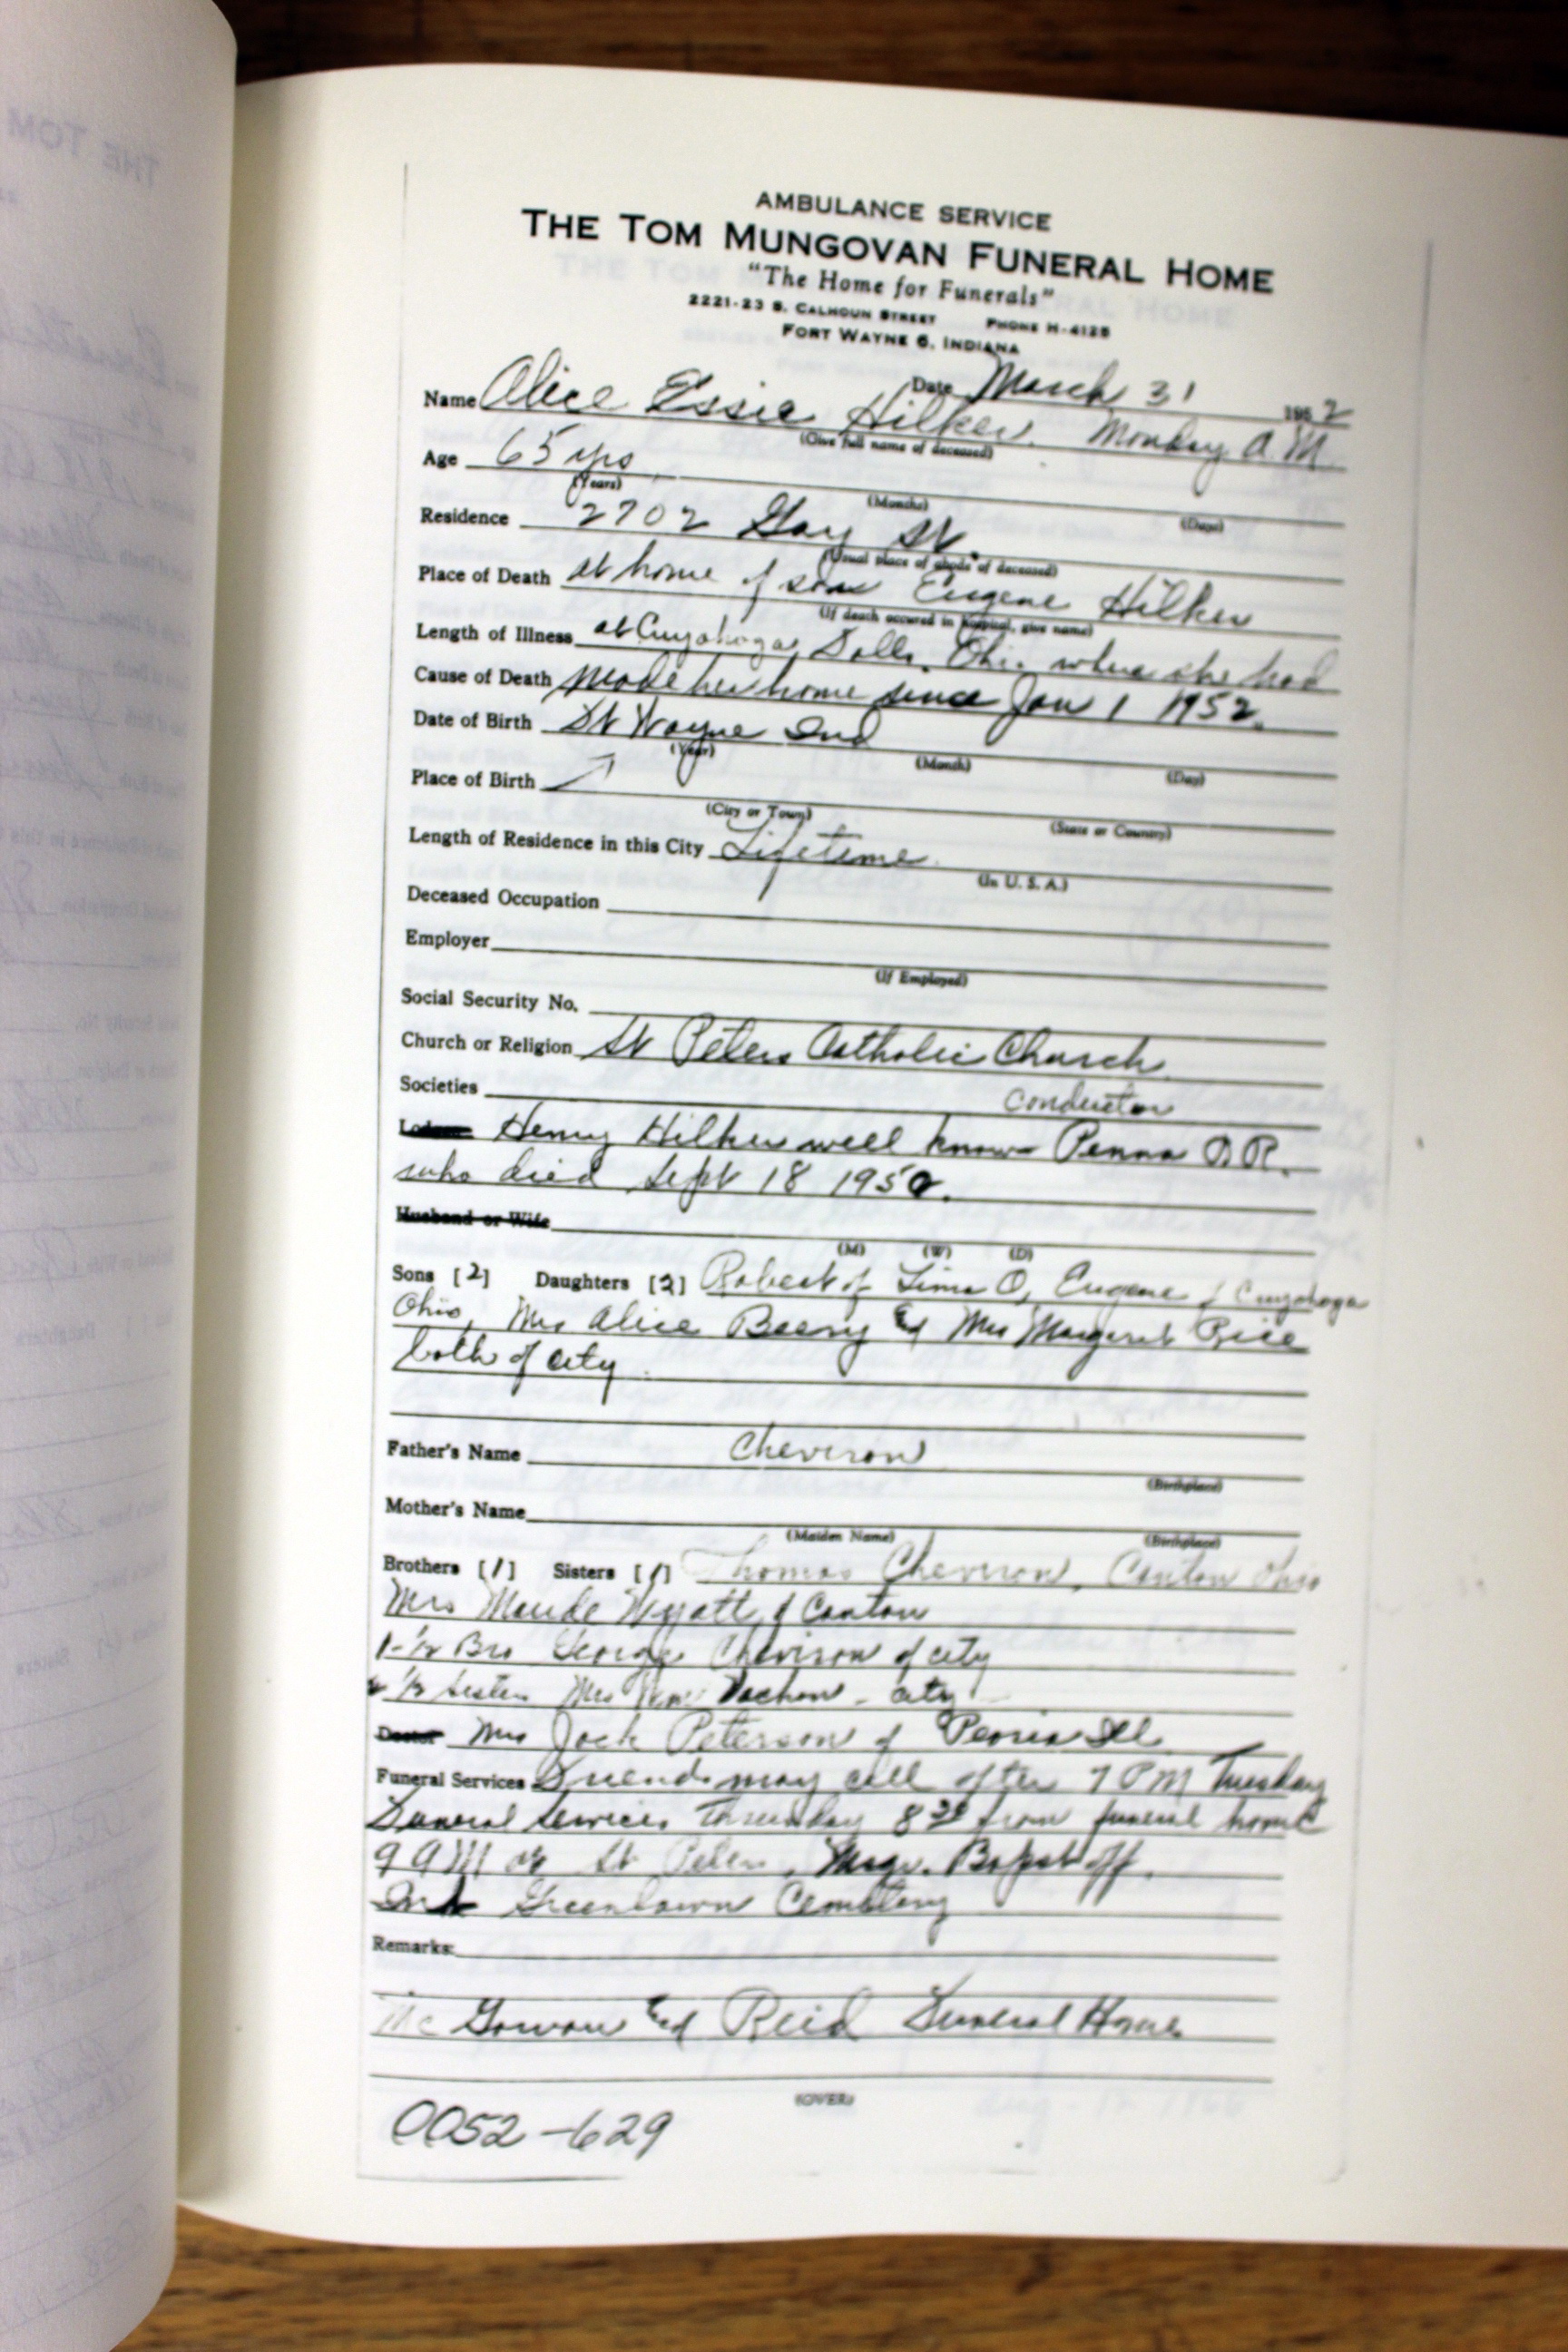 AMBULANCE SERVICE
THE TOM MUNGOVAN FUNERAL HOME
"The Home for Funerals"
2221-23 S. CALHOUN STREET PHONE H-4125
FORT WAYNE 6, INDIANA
Date March 31 1952
Name Alice Essie Hilker. Monday A M
(Give full name of deceased)
Age 65 yrs
(Years) (Months) (Days)
Residence 2702 Gay St.
(Usual place of abode of deceased)
Place of Death at home of son Eugene Hilker
(If death occured in hospital, give name)
Length of Illness at Cuyahoga Falls, Ohio where she had
Cause of Death made her home since Jan 1 1952.
Date of Birth Ft Wayne Ind
(Year) (Month) (Day)
Place of Birth
(City or Town) (State or Country)
Length of Residence in this City Lifetime.
(In U. S. A.)
Deceased Occupation
Employer
(If Employed)
Social Security No.
Church or Religion St Peters Catholic Church
Societies
conductor
Henry Hilker well known Penna R R.
who died Sept 18 1950.
Husband or Wife
(M) (W) (D)
Sons [2] Daughters [2] Robert of Lima O, Eugene of Cuyahoga
Ohio, Mrs Alice Beery & Mrs Margaret Rice
both of city
Father's Name Chevron
(Birthplace)
Mother's Name
(Maiden Name) (Birthplace)
Brothers [1] Sisters [1] Thomas Cheviron, Canton Ohio
Mrs Maude Wyatt of Canton
1-½ Bro George Cheviron of city
½ sister Mrs Wm Vachon - city
Doctor Mrs Jack Peterson of Peoria Ill
Funeral Services Friends may call after 7 PM Tuesday
Funeral Services Thursday 8 30 from funeral home
9 AM at St Peters, Msgr. Bapst off.
Int Greenlawn Cemetery
Remarks:
Mc Gowan & Reid Funeral Home
(OVER)
0052-629
THE TOM